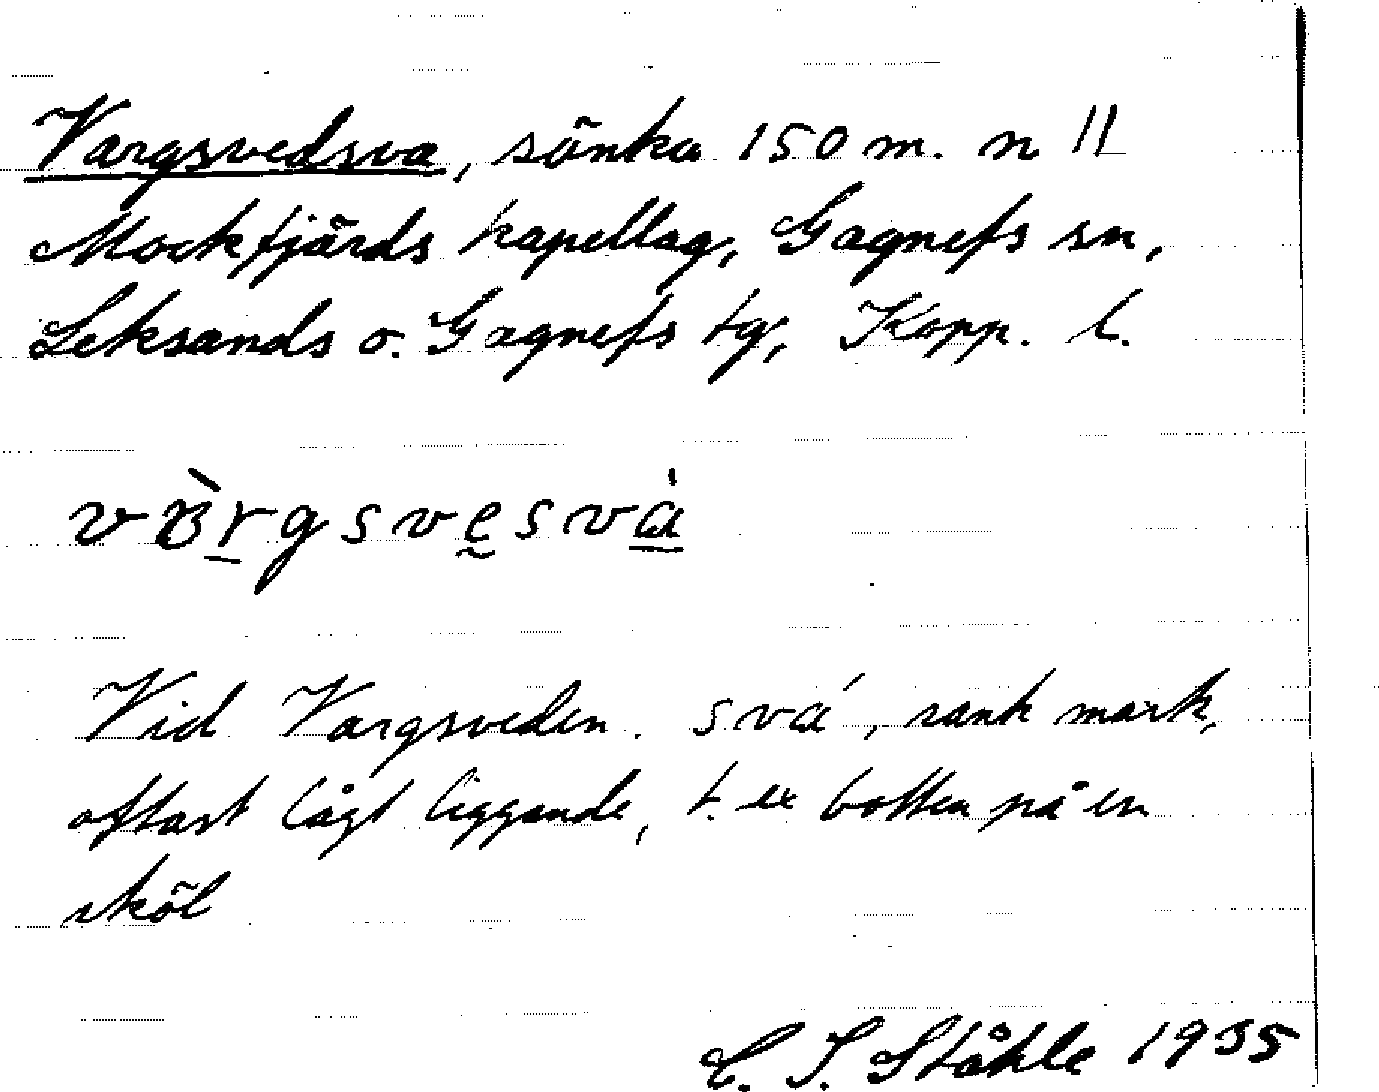 Vargsvedsva, sänka 150 m. n 11
Mockfjärds kapellag, Gagnefs sn,
Leksands o. Gagnefs tg, Kopp. l.
Vid Vargsveden. svá, sank mark,
oftast lågt liggande, t. ex botten på en
sköl
C. I. Ståhle 1935